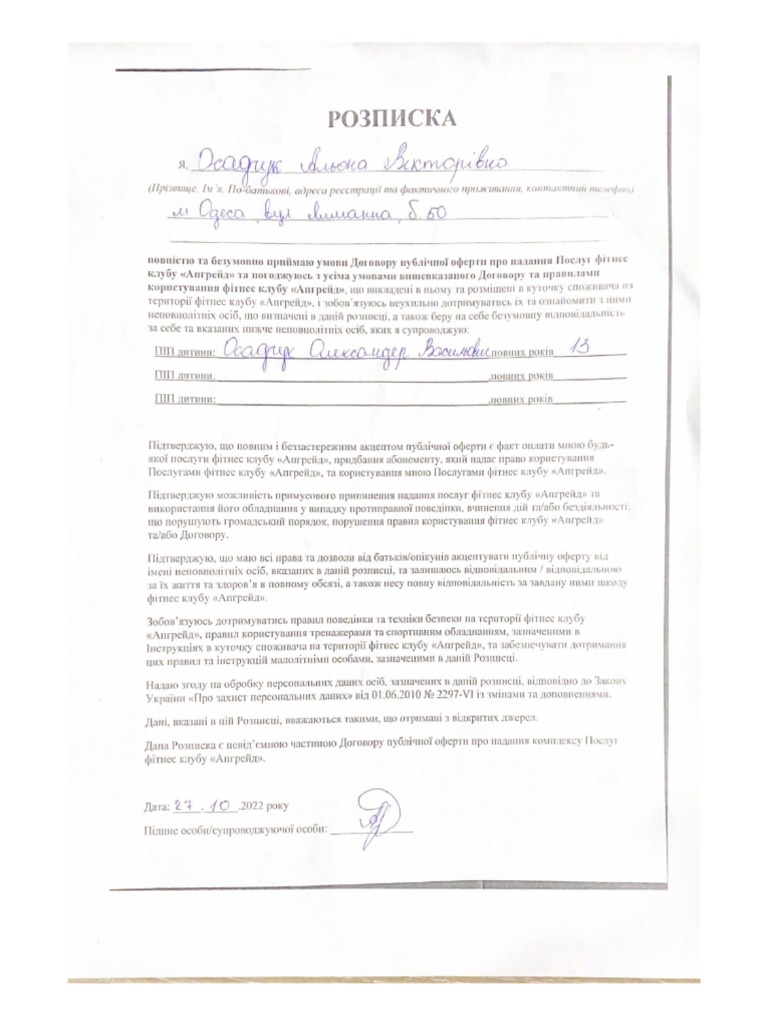 РОЗПИСКА
Я, Осадчук Альона Вікторівна
(Прізвище. Ім'я. По-батькові, адреса реєстрації та фактичного проживання, контактний телефон)
м Одеса, вул Лиманна, б. 50
повністю та безумовно приймаю умови Договору публічної оферти про надання Послуг фітнес
клубу «Апгрейд» та погоджуюсь з усіма умовами вищевказаного Договору та правилами
користування фітнес клубу «Апгрейд», що викладені в ньому та розміщені в куточку споживача на
території фітнес клубу «Апгрейд», і зобов'язуюсь неухильно дотримуватись їх та ознайомити з ними
неповнолітніх осіб, що визначені в даній розписці, а також беру на себе безумовну відповідальність
за себе та вказаних нижче неповнолітніх осіб, яких я супроводжую:
ПІП дитини: Осадчук Олександер Васильович, повних років 13
ПІП дитини: ,повних років
ПІП дитини: ,повних років
Підтверджую, що повним і беззастережним акцептом публічної оферти є факт оплати мною будь-
якої послуги фітнес клубу «Апгрейд», придбання абонементу, який надає право користування
Послугами фітнес клубу «Апгрейд», та користування мною Послугами фітнес клубу «Апгрейд».
Підтверджую можливість примусового припинення надання послуг фітнес клубу «Апгрейд» та
використання його обладнання у випадку протиправної поведінки, вчинення дій та/або бездіяльності,
що порушують громадський порядок, порушення правил користування фітнес клубу «Апгрейд»
та/або Договору.
Підтверджую, що маю всі права та дозволи від батьків/опікунів акцептувати публічну оферту від
імені неповнолітніх осіб, вказаних в даній розписці, та залишаюсь відповідальним / відповідальною
за їх життя та здоров'я в повному обсязі, а також несу повну відповідальність за завдану ними шкоду
фітнес клубу «Апгрейд».
Зобов'язуюсь дотримуватись правил поведінки та техніки безпеки на території фітнес клубу
«Апгрейд», правил користування тренажерами та спортивним обладнанням, зазначеними в
Інструкціях в куточку споживача на території фітнес клубу «Апгрейд», та забезпечувати дотримання
цих правил та інструкцій малолітніми особами, зазначеними в даній Розписці.
Надаю згоду на обробку персональних даних осіб, зазначених в даній розписці, відповідно до Закону
України «Про захист персональних даних» від 01.06.2010 № 2297-VI із змінами та доповненнями.
Дані, вказані в цій Розписці, вважаються такими, що отримані з відкритих джерел.
Дана Розписка є невід'ємною частиною Договору публічної оферти про надання комплексу Послуг
фітнес клубу «Апгрейд».
Дата: 27.10.2022 року
Підпис особи/супроводжуючої особи: